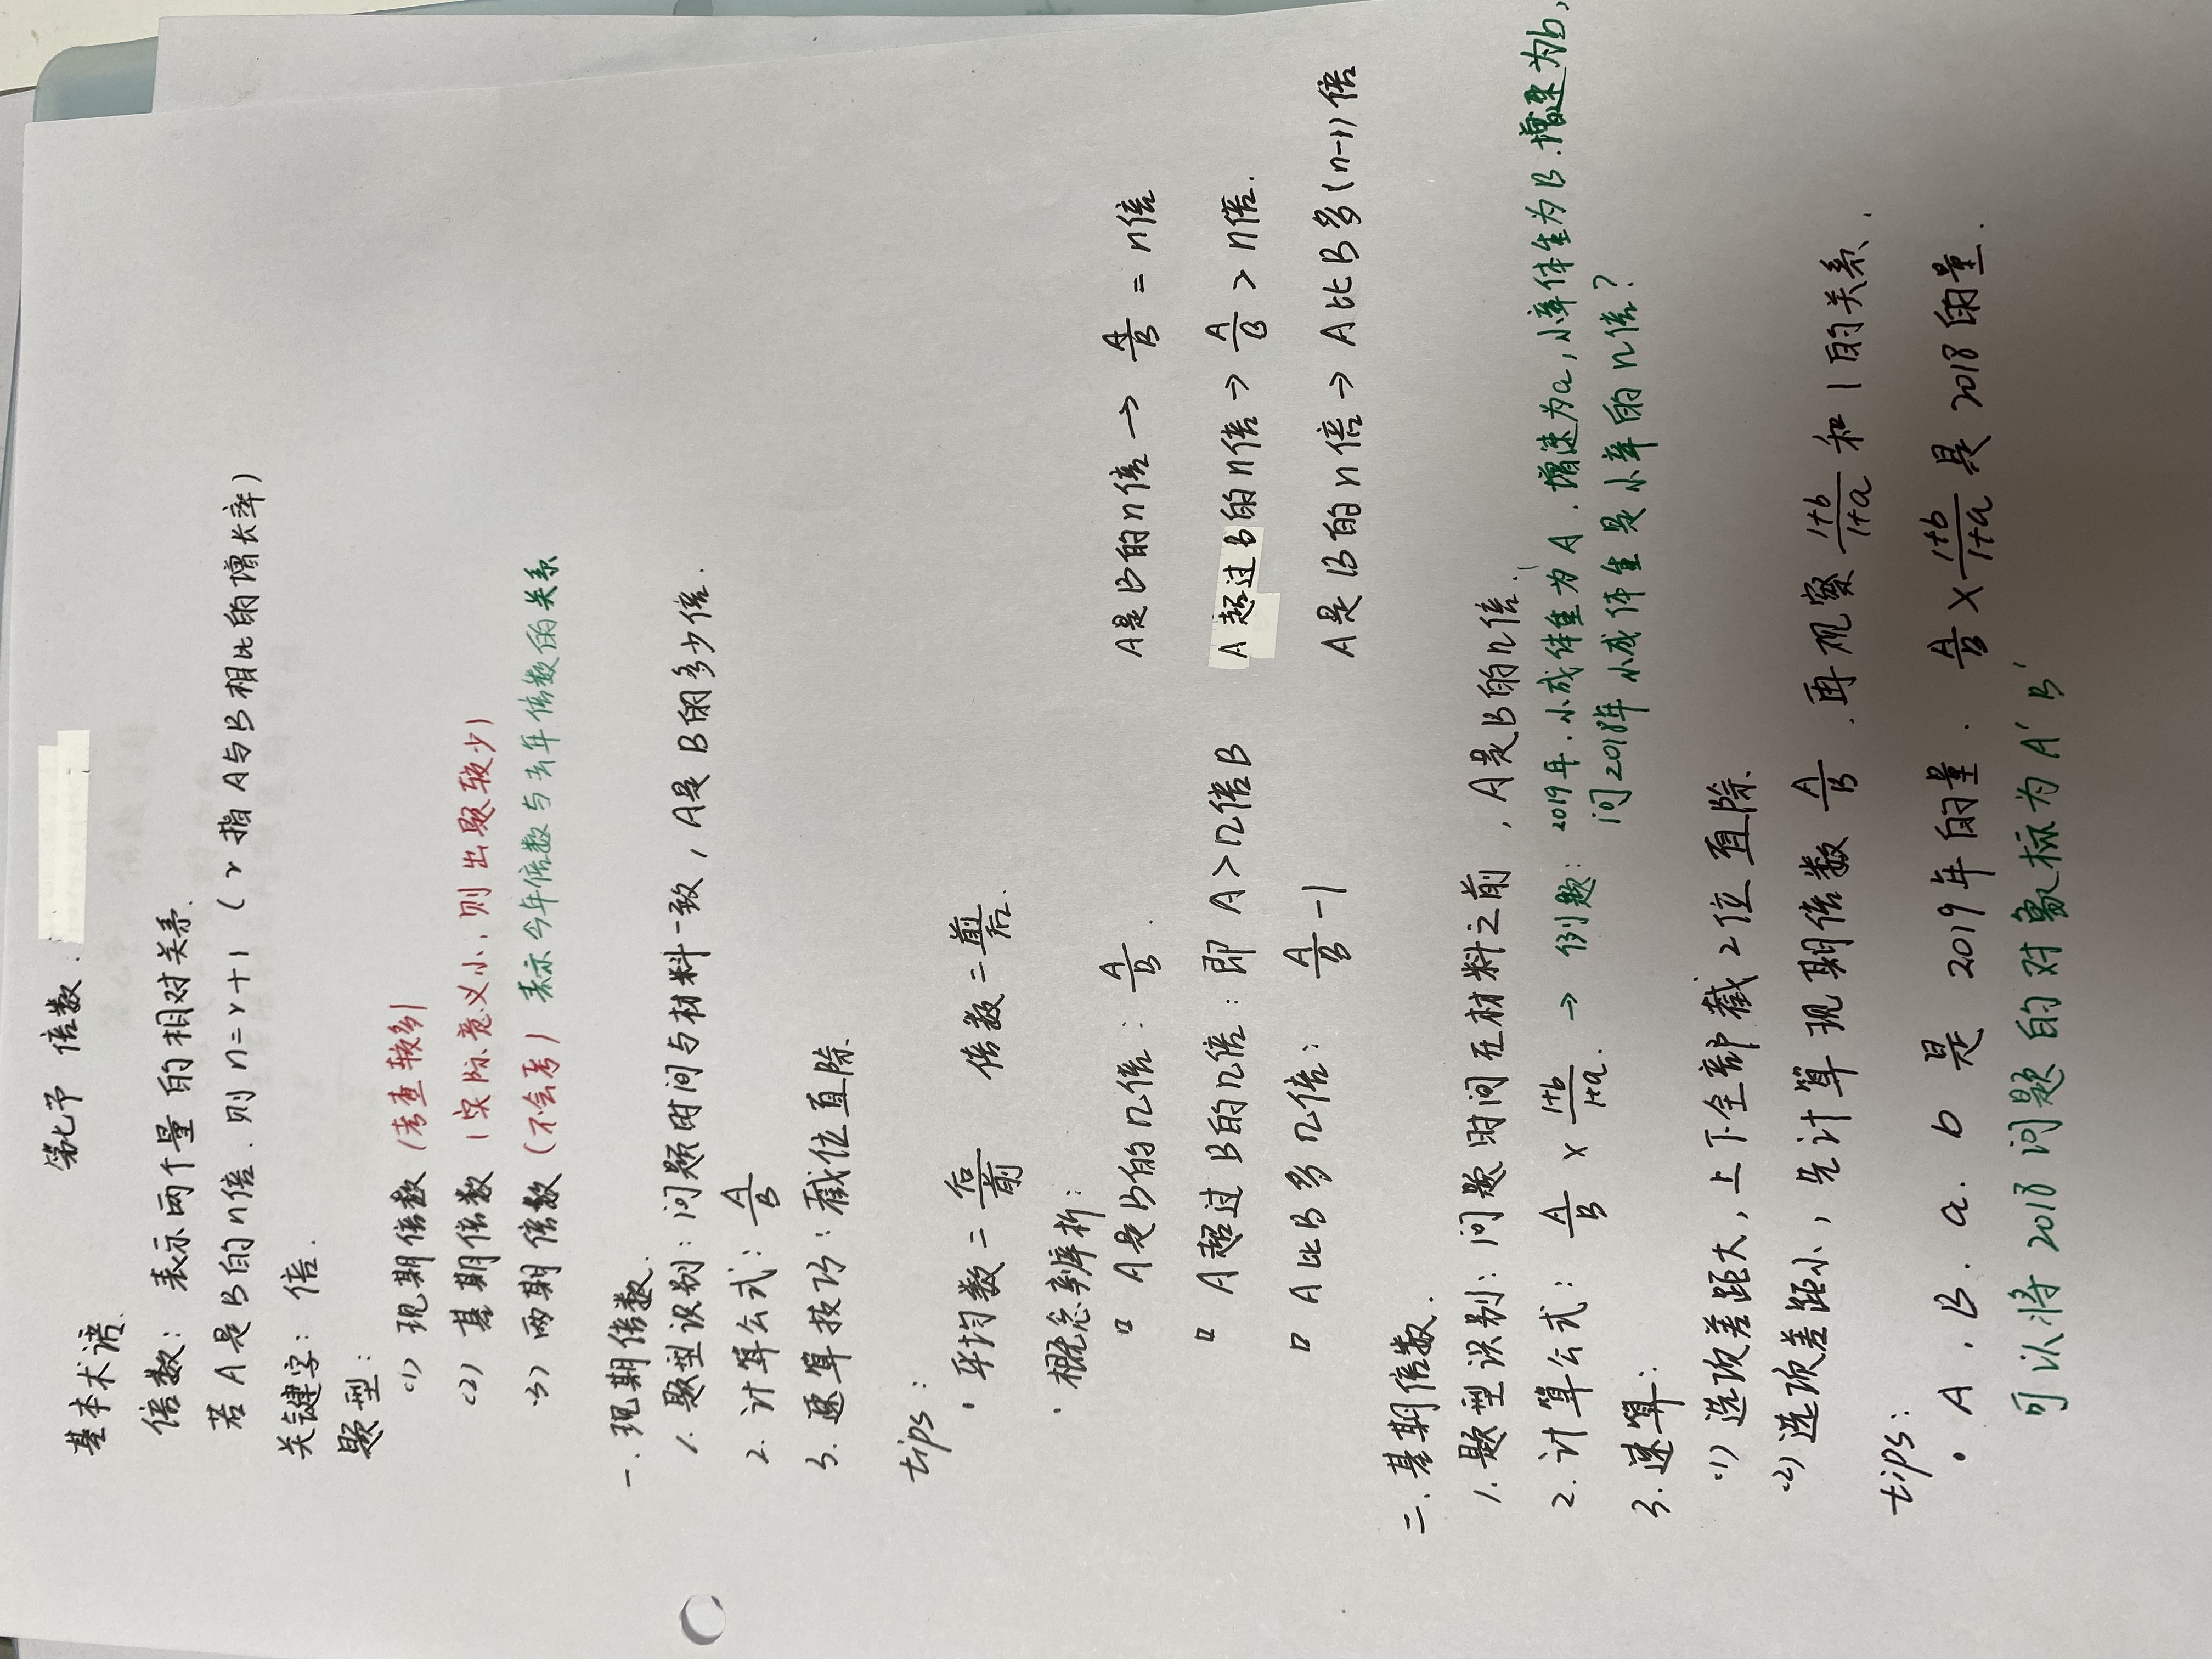 第七节 倍数.
基本术语.
倍数：表示两个量的相对关系.
若A是B的n倍.则n=r+1 (r指A与B相比的增长率)
关键字：倍.
题型：
(1) 现期倍数 (考查较多)
(2) 基期倍数 (实际意义小,则出题较少)
(3) 两期倍数 (不会考) 表示今年倍数与去年倍数的关系
一.现期倍数.
1. 题型识别：问题时间与材料一致,A是B的多少倍.
2. 计算公式：A/B
3. 速算技巧：截位直除.
tips：
· 平均数=后/前 倍数=前/后.
· 概念辨析：
□ A是B的n倍：A/B. A是B的n倍→A/B=n倍
□ A超过B的n倍：即A>n倍B A超过B的n倍→A/B>n倍.
□ A比B多n倍：A/B-1 A是B的n倍→A比B多(n-1)倍
二.基期倍数.
1. 题型识别：问题时间在材料之前,A是B的n倍.
2. 计算公式：A/B×(1+b)/(1+a).→例题：2019年.小成体重为A.增速为a,小辛体重为B.增速为b,
问2018年小成体重是小辛的n倍?
3. 速算：
(1) 选项差距大,上下全部截2位直除.
(2) 选项差距小,先计算现期倍数A/B.再观察(1+b)/(1+a)和1的关系.
tips：
· A.B.a.b是2019年的量.A/B×(1+b)/(1+a)是2018的量.
可以将2018问题的对象标为A'B'